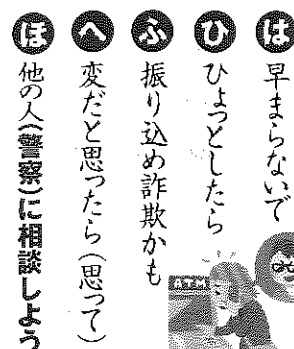 は 早まらないで
ひ ひょっとしたら
ふ 振り込め詐欺かも
へ 変だと思ったら(思って)
ほ 他の人(警察)に相談しよう
ATM